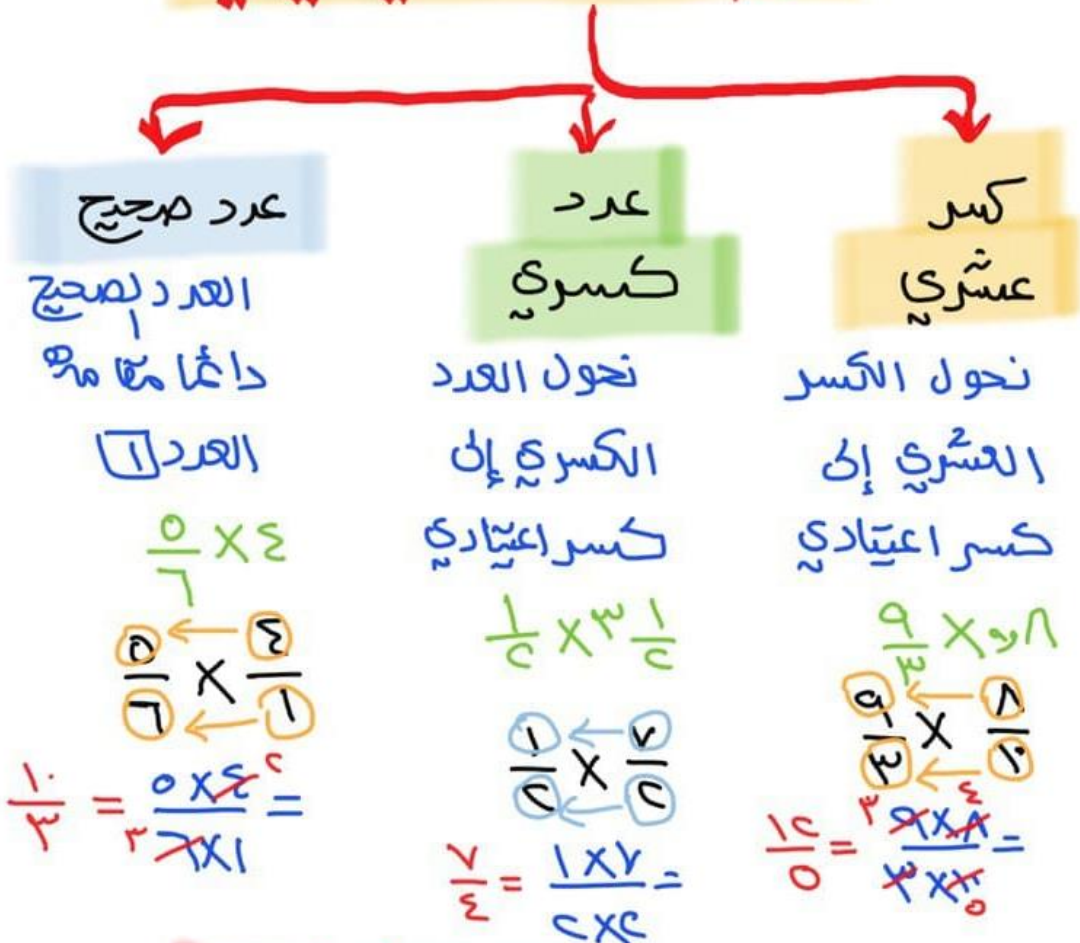 كسر
عشري
نحول الكسر
العشري إلى
كسر اعتيادي
٨و٠ × ٩/٣
٨/١٠ × ٩/٣
= ٨×٩/١٠×٣ = ١٢/٥
٤ ٣
٥
عدد
كسري
نحول العدد
الكسري إلى
كسر اعتيادي
٣ ١/٢ × ١/٢
٧/٢ × ١/٢
= ٧×١/٢×٢ = ٧/٤
عدد صحيح
العدد الصحيح
دائمًا مقامه
العدد ١
٤ × ٥/٦
٤/١ × ٥/٦
= ٤×٥/١×٦ = ١٠/٣
٢
٣